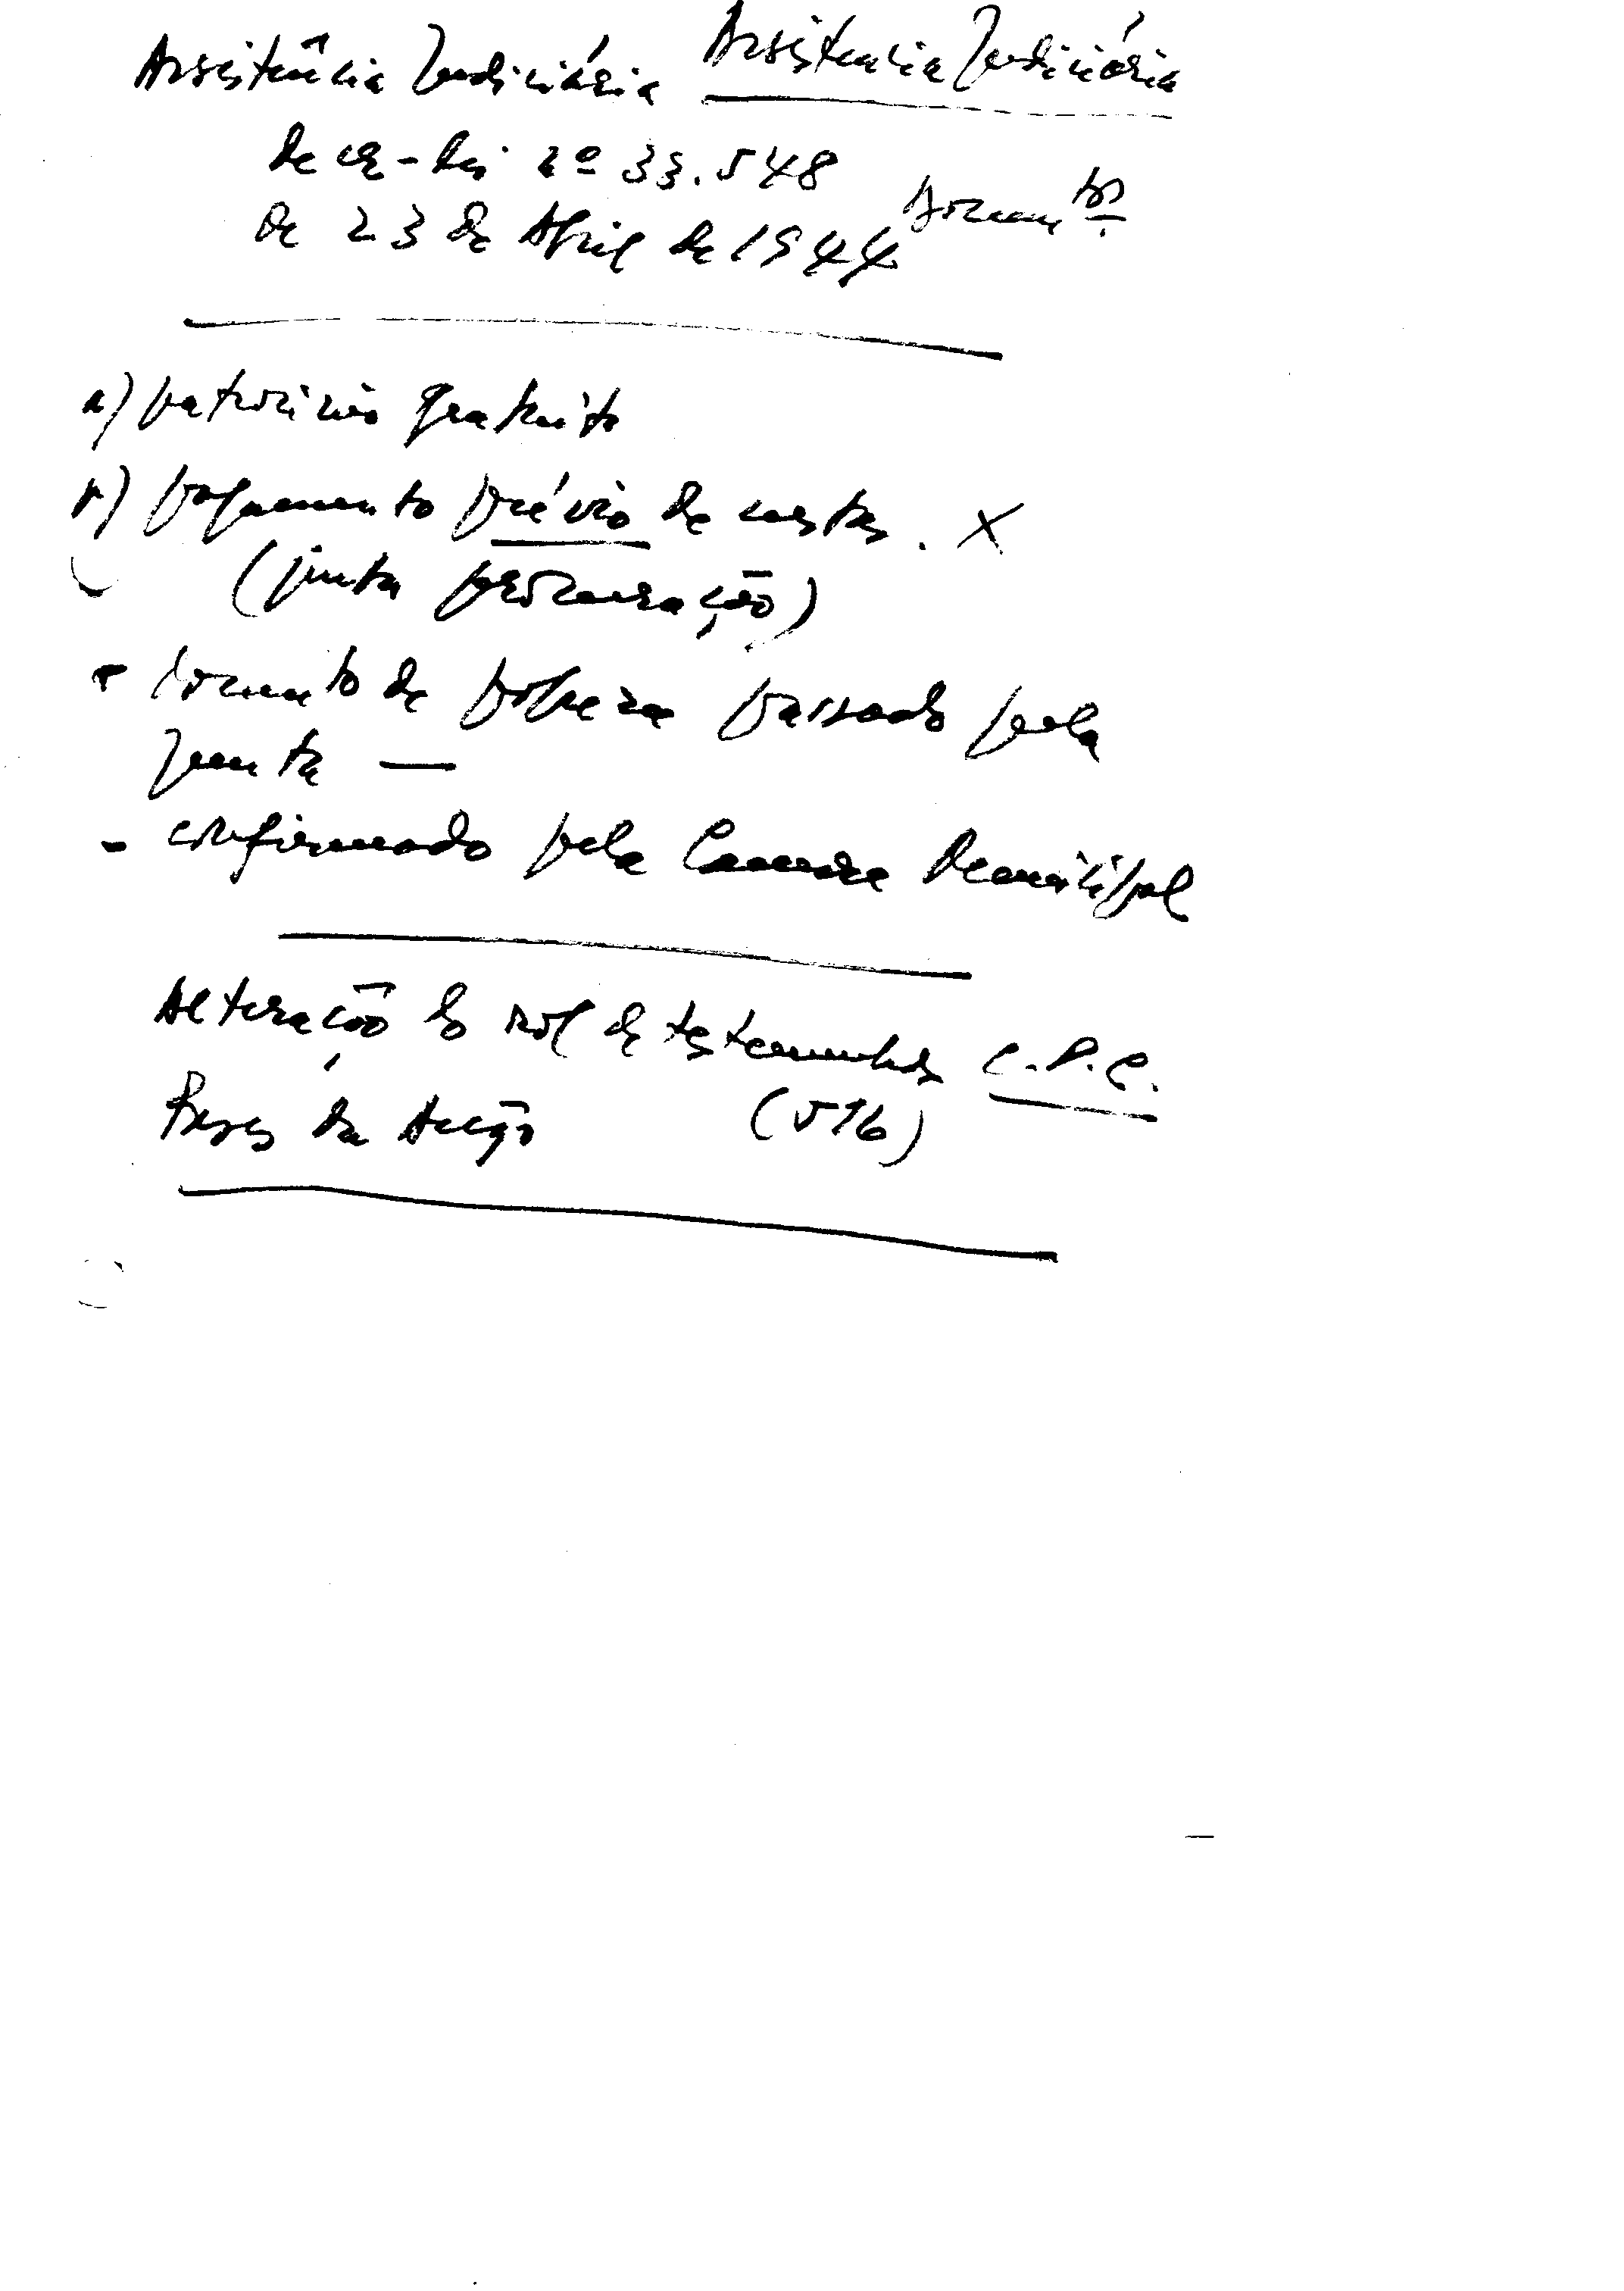 Assistência Judiciária Assistencia Judiciária
Decr-Lei nº 33.548
de 23 de Abril de 1944 Documtos.
a) patrocínio gratuito
b) pagamento prévio de custas. X
(junta procuração)
- documento de pobreza passado pela
Junta —
- confirmado pela Camara Municipal
Alteração do rol de testemunhas C.P.C.
da Acção (516)